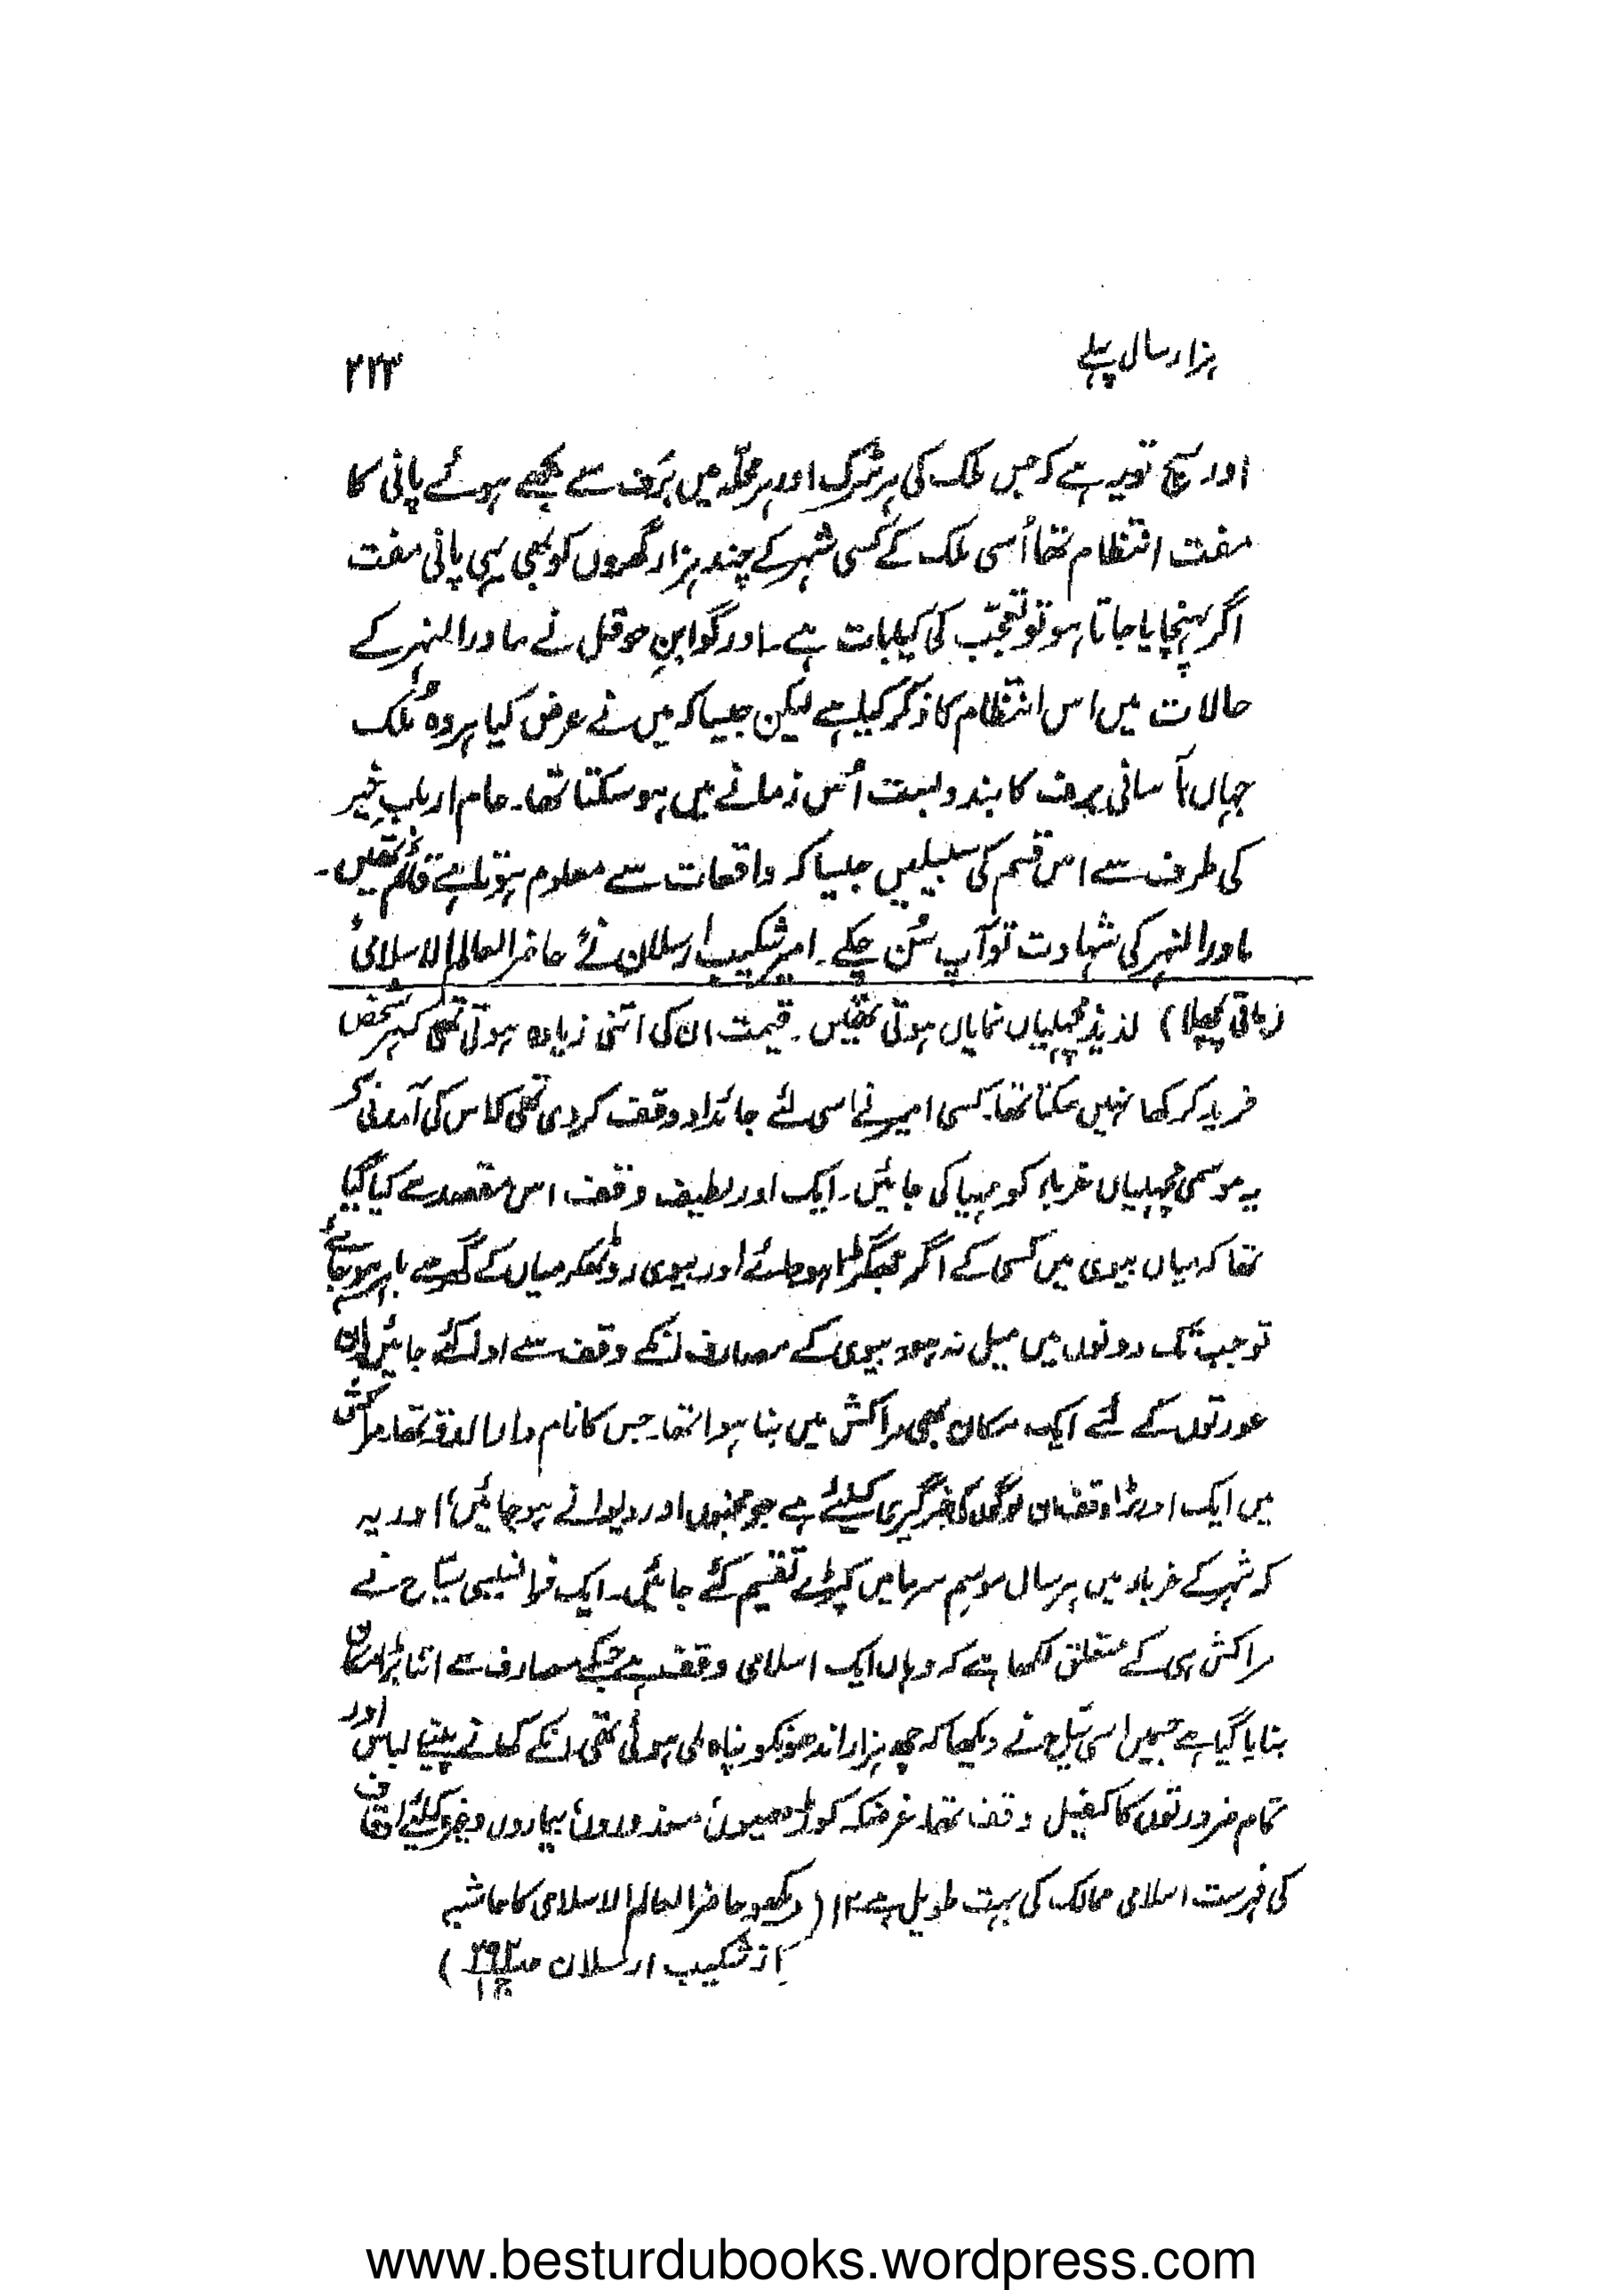 ہزار سال پہلے
۲۲۳
اور سچ تو یہ ہے کہ جس ملک کی ہر سڑک اور ہر محلّہ میں بَرَف سے بجھے ہوئے پانی کا
مفت انتظام تھا اُسی ملک کے کسی شہر کے چند ہزار گھروں کو بھی یہی پانی مفت
اگر پہنچایا جاتا ہو تو تعجّب کی کیا بات ہے۔ اور گو ابنِ حوقل نے ماوراالنہر کے
حالات میں اس انتظام کا ذکر کیا ہے لیکن جیسا کہ میں نے عرض کیا ہر وہ مُلک
جہاں بآسانی برف کا بندوبست اُس زمانے میں ہو سکتا تھا۔ عام اربابِ خیر
کی طرف سے اس قسم کی سبیلیں جیسا کہ واقعات سے معلوم ہوتا ہے قائم تھیں۔
ماوراالنہر کی شہادت تو آپ سُن چکے۔ امیر شکیب ارسلان نے حاضر العالم الاسلامی
(باقی پچھلا) لذیذ مچھلیاں نمایاں ہوتی تھیں۔ قیمت ان کی اتنی زیادہ ہوتی تھی کہ ہر شخص
خرید کر کھا نہیں سکتا تھا۔ کسی امیر نے اسی لئے جائداد وقف کر دی تھی کہ اس کی آمدنی سے
یہ موسمی مچھلیاں غرباء کو مہیا کی جائیں۔ ایک اور لطیف وقف اس مقصد سے کیا گیا
تھا کہ میاں بیوی میں کسی کے اگر جھگڑا ہو جائے اور بیوی روٹھکر میاں کے گھر سے باہر ہو جائے
تو جب تک دونوں میں میل نہ ہو بیوی کے مصارف اس کے وقف سے ادا کئے جائیں ان
عورتوں کے لئے ایک مکان بھی مراکش میں بنا ہوا تھا۔ جس کا نام دار الدقہ تھا۔ مراکش
میں ایک اور بڑا وقف ان لوگوں کی خبر گیری کیلئے ہے جو مجنوں اور دیوانے ہو جائیں، اور یہ
کہ شہر کے غرباء میں ہر سال موسم سرما میں کپڑے تقسیم کئے جائیں۔ ایک فرانسیسی سیّاح نے
مراکش ہی کے متعلق لکھا ہے کہ وہاں ایک اسلامی وقف ہے جس کے مصارف سے اتنا بڑا مکان
بنایا گیا ہے جسمیں اسی سیّاح نے دیکھا کہ چھ ہزار اندھونکو پناہ ملی ہوئی تھی انکے کھانے پینے لباس اور
تمام ضرورتوں کا کفیل وقف تھا۔ غرضکہ کوڑھیوں، معذوروں، بیماروں وغیرہ کیلئے اوقاف
کی فہرست اسلامی ممالک کی بہت طویل ہے ۱۲ (دیکھو حاضر العالم الاسلامی کا حاشیہ
از شکیب ارسلان ص ۲۹۲ ج ۱)
www.besturdubooks.wordpress.com